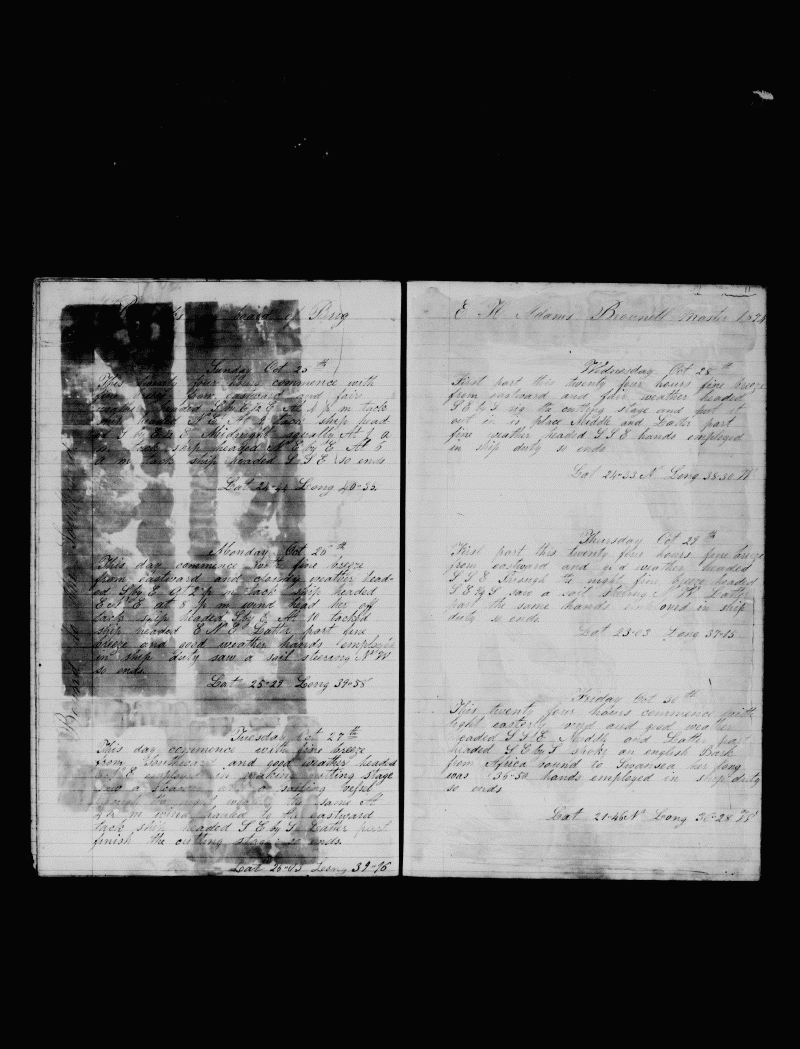 board of Brig
Sunday Oct 25th
This twenty four hours commence with
fine breeze from eastward and fair
weather headed S by E 1/2 E At 4 p m tack
ship headed N E At 8 tack ship head
ed S by E 1/2 E Midnight squally At 1 a
m tack ship headed N E by E At 6
a m tack ship headed S S E so ends
Lat 24-44 Long 40-35
Monday Oct 26th
This day commence with fine breeze
from eastward and cloudy weather head-
ed S by E At 2 p m tack ship headed
E N E at 8 p m wind head her off
tack ship headed S by E At 10 tack'd
ship headed E N E Latter part fine
breeze and good weather hands employed
in ship duty saw a sail steering N W
so ends
Lat 25-29 Long 39-58
Tuesday Oct 27th
This day commence with fine breeze
from Southward and good weather headed
E employed in making cutting stage
Saw a steamer and a sailing vessel
through the night weather the same At
4 a m wind hauled to the eastward
tack ship headed S E by S Latter part
finish the cutting stage so ends
Lat 26-03 Long 39-76
Bound to the
E H Adams Brownell Master 1874
Wednesday Oct 28th
First part this twenty four hours fine breeze
from eastward and fair weather headed
S E by S rig the cutting stage and put it
out in is place Middle and Latter part
fine weather headed S S E hands employed
in ship duty so ends
Lat 24-33 N Long 38-30 W
Thursday Oct 29th
First part this twenty four hours fine breeze
from eastward and good weather headed
S S E through the night fine breeze headed
S E by S saw a sail stering N W Latter
part the same hands employed in ship
duty so ends
Lat 23-03 Long 37-15
Friday Oct 30th
This twenty four hours commence with
light easterly wind and good weather
headed S S E Middle and Latter part
headed S E by S spoke an english Bark
from Africa bound to Swansea her long
was 36-50 hands employed in ship duty
so ends
Lat 21-46 N Long 36-28 W